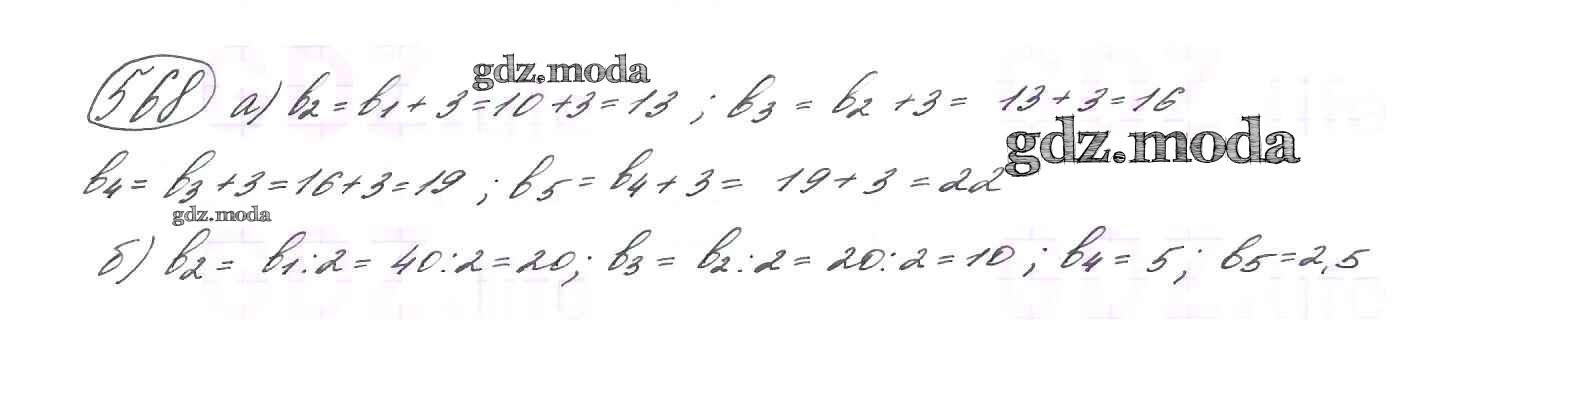 568 а) b₂ = b₁ + 3 = 10 + 3 = 13 ; b₃ = b₂ + 3 = 13 + 3 = 16
gdz.moda
gdz.moda
b₄ = b₃ + 3 = 16 + 3 = 19 ; b₅ = b₄ + 3 = 19 + 3 = 22
gdz.moda
б) b₂ = b₁ : 2 = 40 : 2 = 20; b₃ = b₂ : 2 = 20 : 2 = 10 ; b₄ = 5 ; b₅ = 2,5